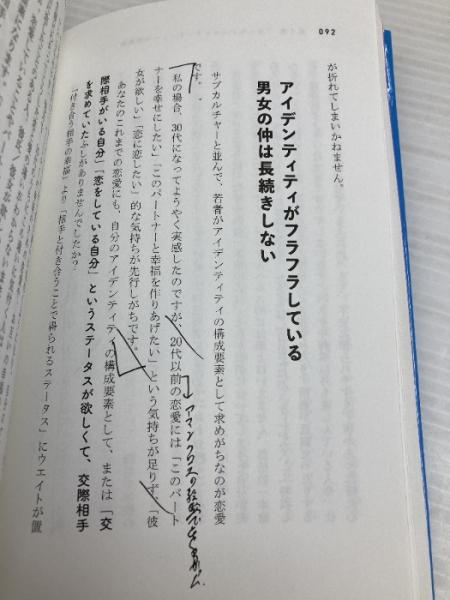 092
が折れてしまいかねません。
アイデンティティがフラフラしている
男女の仲は長続きしない
サブカルチャーと並んで、若者がアイデンティティの構成要素として求めがちなのが恋愛
です。
私の場合、30代になってようやく実感したのですが、20代以前の恋愛には「このパート
ナーを幸せにしたい」「このパートナーと幸福を作りあげたい」という気持ちが足りず、「彼
女が欲しい」「恋に恋したい」的な気持ちが先行しがちです。
あなたのこれまでの恋愛にも、自分のアイデンティティの構成要素として、または「交
際相手がいる自分」「恋をしている自分」というステータスが欲しくて、交際相手
を求めていたふしがありませんでしたか?
「付き合う相手の幸福」より「相手と付き合うことで得られるステータス」にウエイトが置